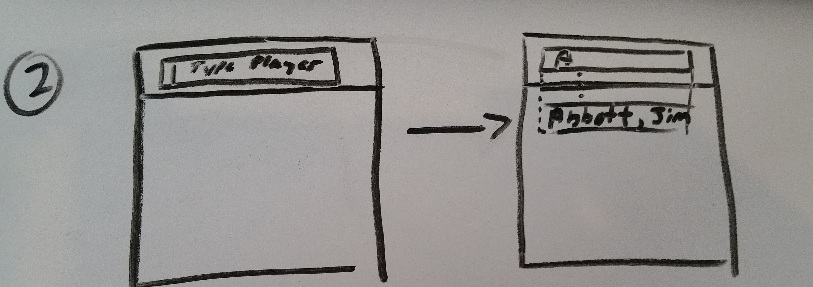 2
Type Player
A
Abbott, Jim